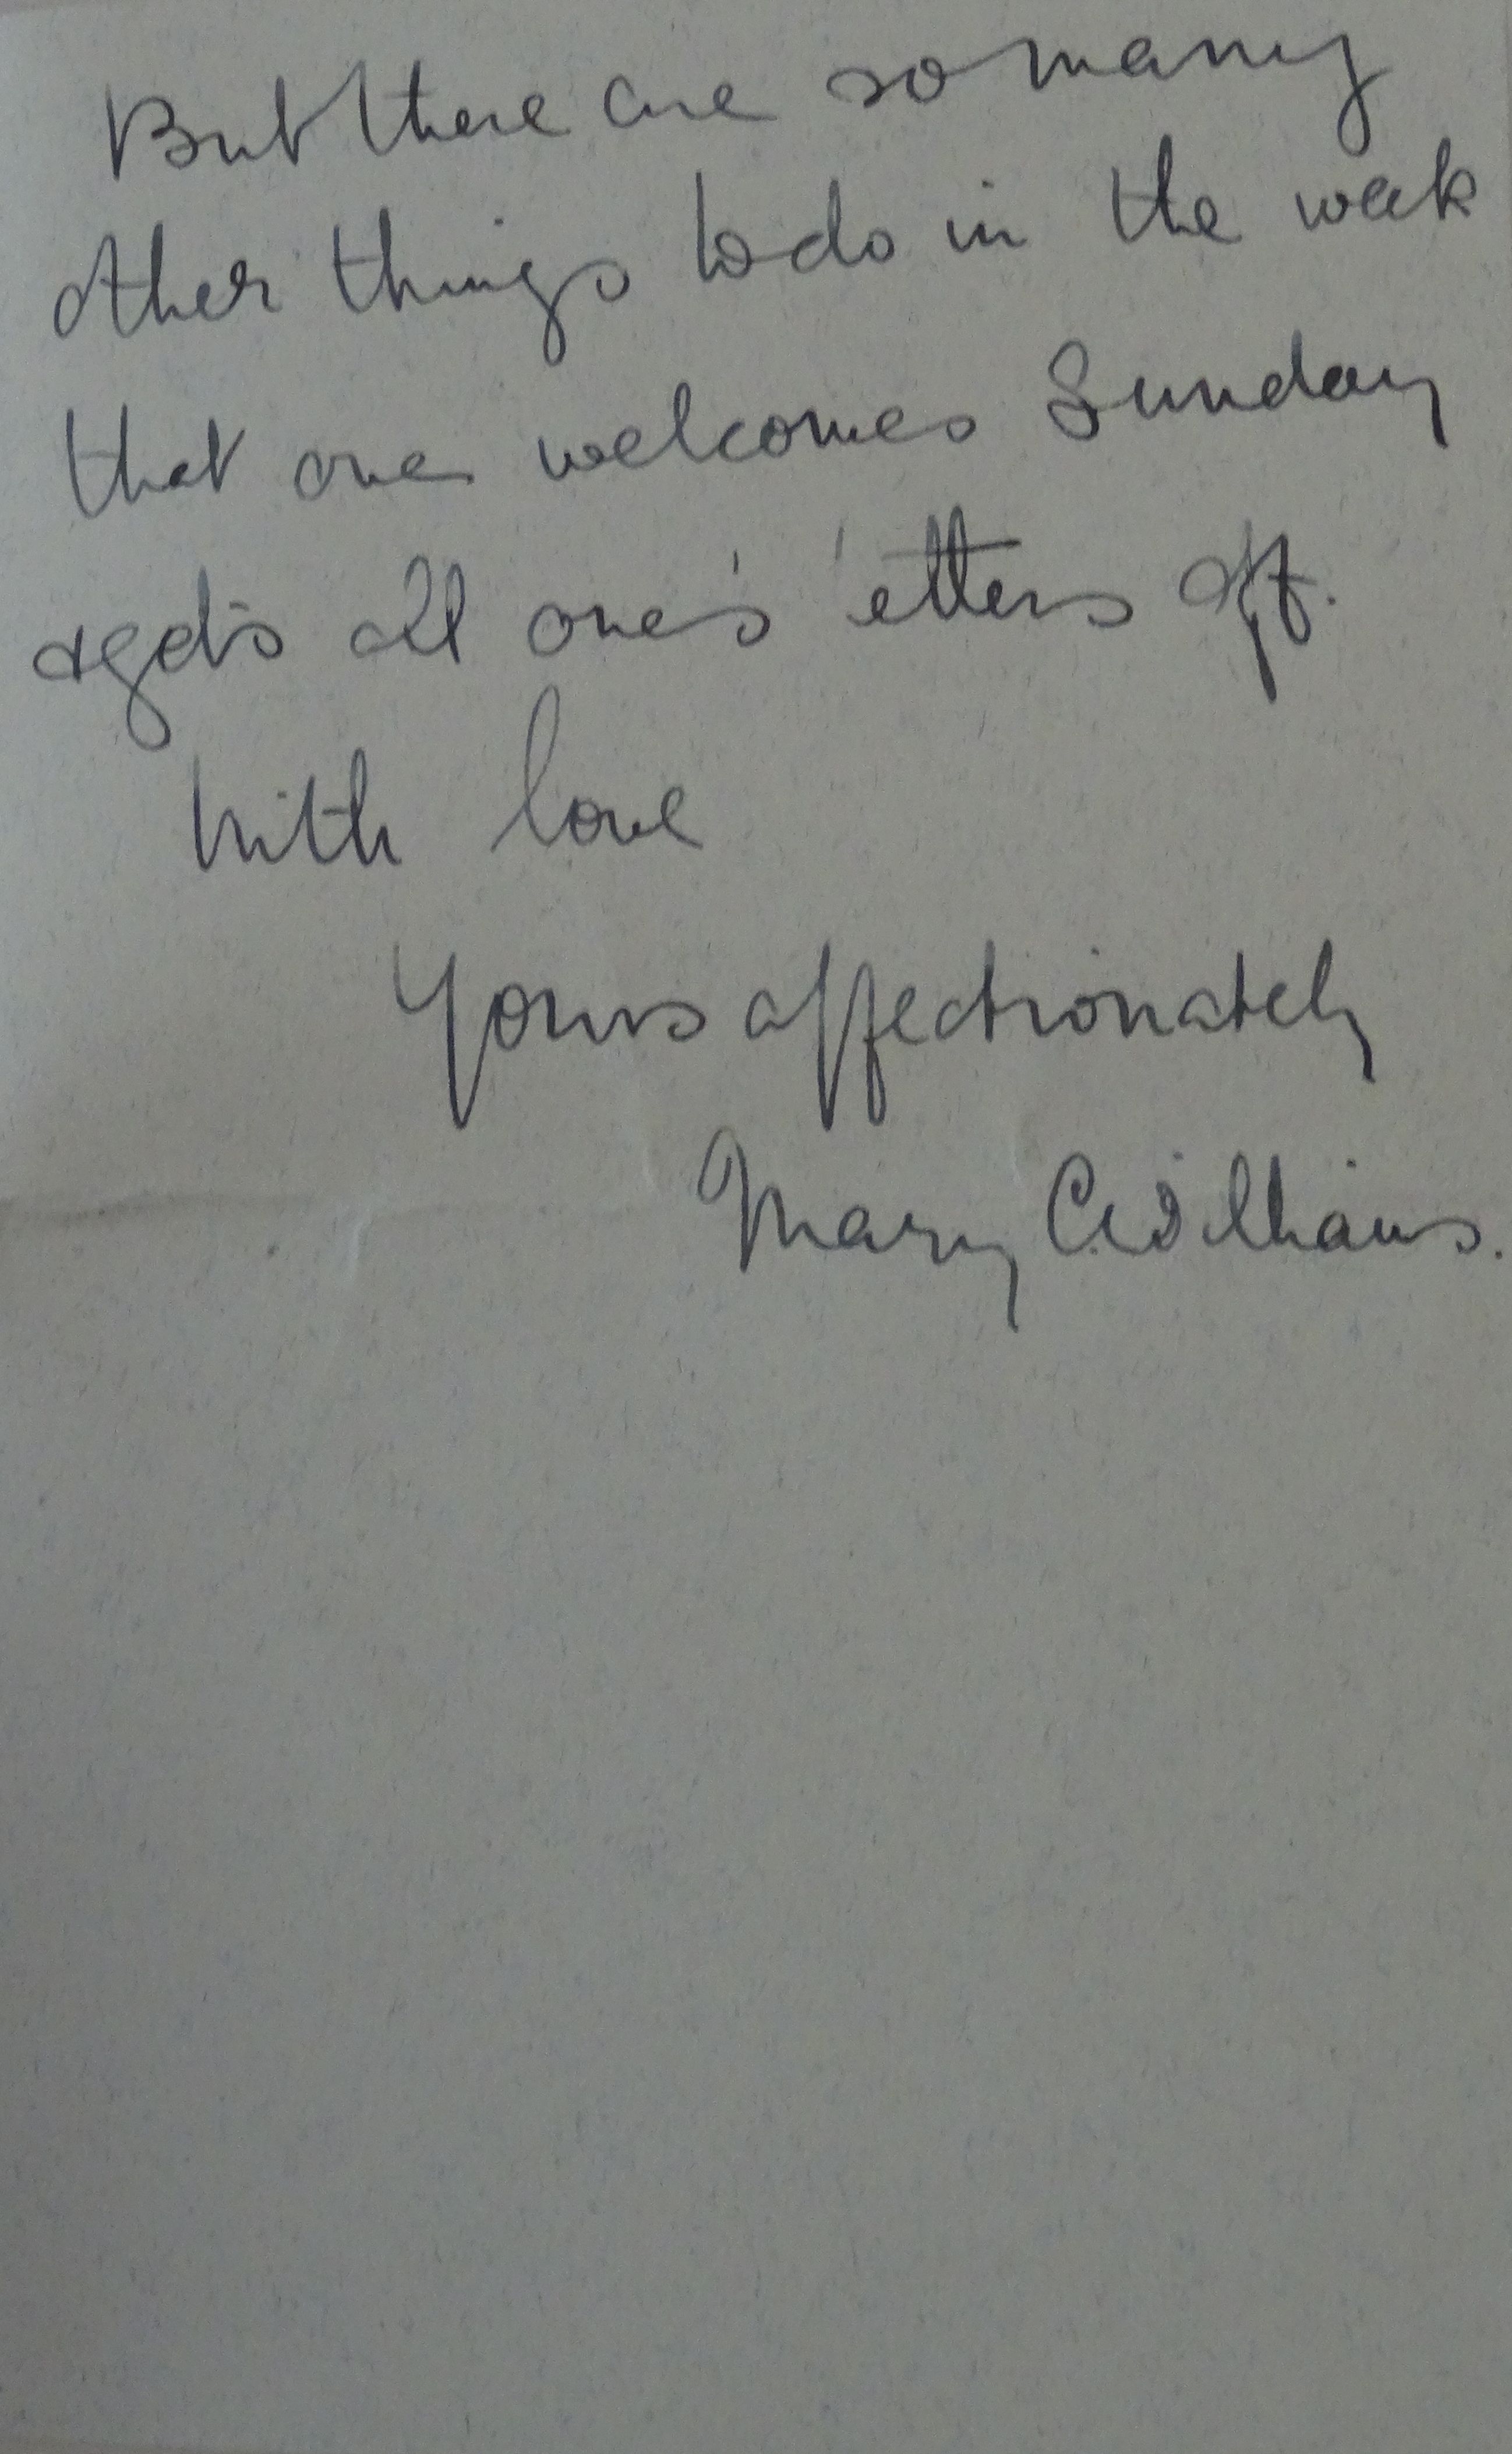 But there are so many
other things to do in the week
that one welcomes Sunday
& gets all one's letters off.
With love
Yours affectionately
Mary C. Williams.